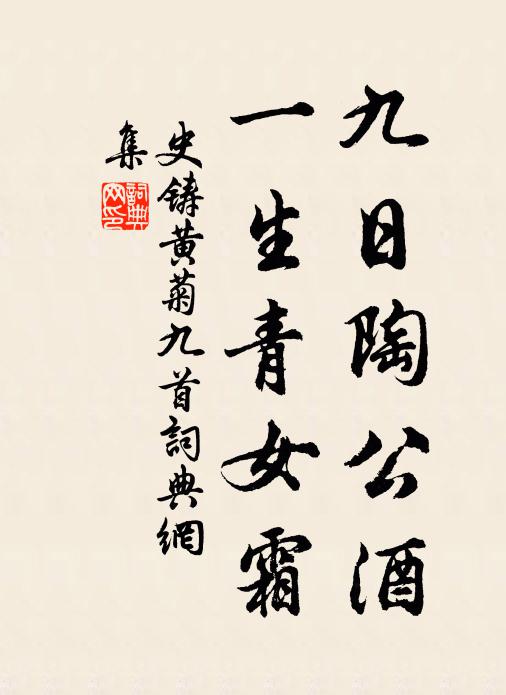 九日陶公酒
一生青女霜
史鑄黃菊九首詞典網
集
詞典
网印